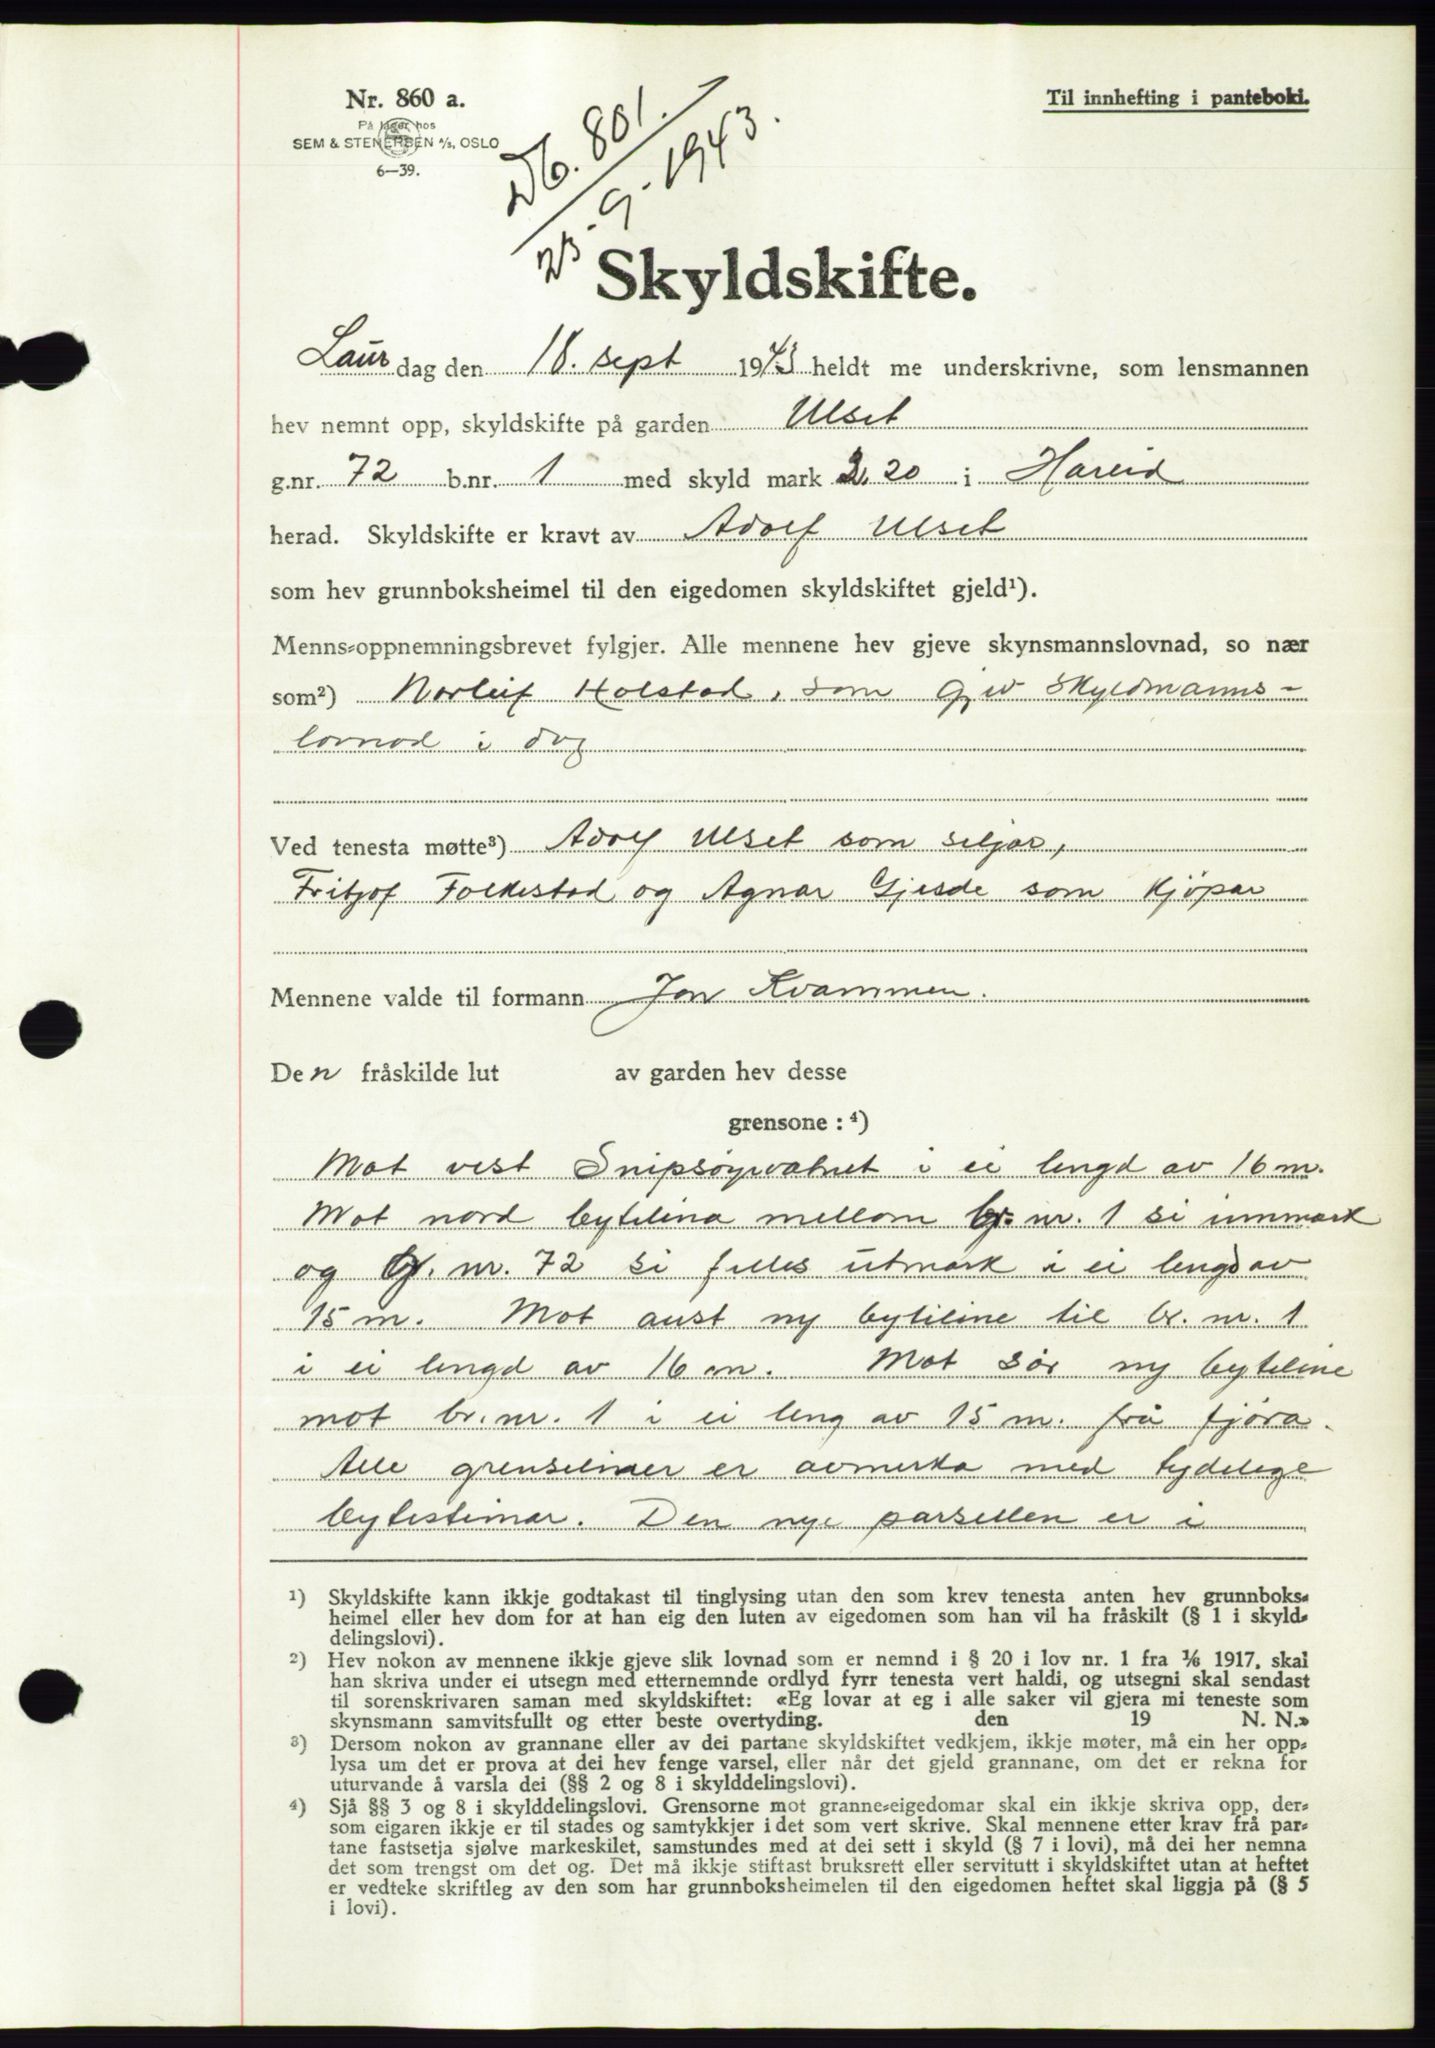 Nr. 860 a.
På lager hos
SEM & STENERSEN A/S, OSLO
6—39.
Til innhefting i panteboki.
Db. 801.
23-9-1943.
Skyldskifte.
Laurdag den 18. sept 1943 heldt me underskrivne, som lensmannen
hev nemnt opp, skyldskifte på garden Ulset
g.nr. 72 b.nr. 1 med skyld mark 2.20 i Hareid
herad. Skyldskifte er kravt av Adolf Ulset
som hev grunnboksheimel til den eigedomen skyldskiftet gjeld¹).
Menns-oppnemningsbrevet fylgjer. Alle mennene hev gjeve skynsmannslovnad, so nær
som²) Norleif Holstad, som gjev skyldmanns-
lovnad i dag
Ved tenesta møtte³) Adolf Ulset som seljar,
Fritjof Folkestad og Agnar Gjesde som kjöpar
Mennene valde til formann Jon Kvammen.
Den fråskilde lut av garden hev desse
grensone : ⁴)
Mot vest Snipsöyrvatnet i ei lengd av 16 m.
Mot nord bytelina mellom br. nr. 1 si innmark
og G. nr. 72 si felles utmark i ei lengd av
15 m. Mot aust ny byteline til br. nr. 1
i ei lengd av 16 m. Mot sör ny byteline
mot br. nr. 1 i ei leng av 15 m. frå fjöra.
Alle grenseliner er avmerka med tydelege
bytesteinar. Den nye parsellen er i
1) Skyldskifte kann ikkje godtakast til tinglysing utan den som krev tenesta anten hev grunnboks-
heimel eller hev dom for at han eig den luten av eigedomen som han vil ha fråskilt (§ 1 i skyld-
delingslovi).
2) Hev nokon av mennene ikkje gjeve slik lovnad som er nemnd i § 20 i lov nr. 1 fra 1/6 1917, skal
han skriva under ei utsegn med etternemnde ordlyd fyrr tenesta vert haldi, og utsegni skal sendast
til sorenskrivaren saman med skyldskiftet: «Eg lovar at eg i alle saker vil gjera mi teneste som
skynsmann samvitsfullt og etter beste overtyding. den 19 N. N.»
3) Dersom nokon av grannane eller av dei partane skyldskiftet vedkjem, ikkje møter, må ein her opp-
lysa um det er prova at dei hev fenge varsel, eller når det gjeld grannane, om det er rekna for
uturvande å varsla dei (§§ 2 og 8 i skylddelingslovi).
4) Sjå §§ 3 og 8 i skylddelingslovi. Grensorne mot granne-eigedomar skal ein ikkje skriva opp, der-
som eigaren ikkje er til stades og samtykkjer i det som vert skrive. Skal mennene etter krav frå par-
tane fastsetja sjølve markeskilet, samstundes med at dei sett i skyld (§ 7 i lovi), må dei her nemna
det som trengst om det og. Det må ikkje stiftast bruksrett eller servitutt i skyldskiftet utan at heftet
er vedteke skriftleg av den som har grunnboksheimelen til den eigedomen heftet skal liggja på (§ 5
i lovi).